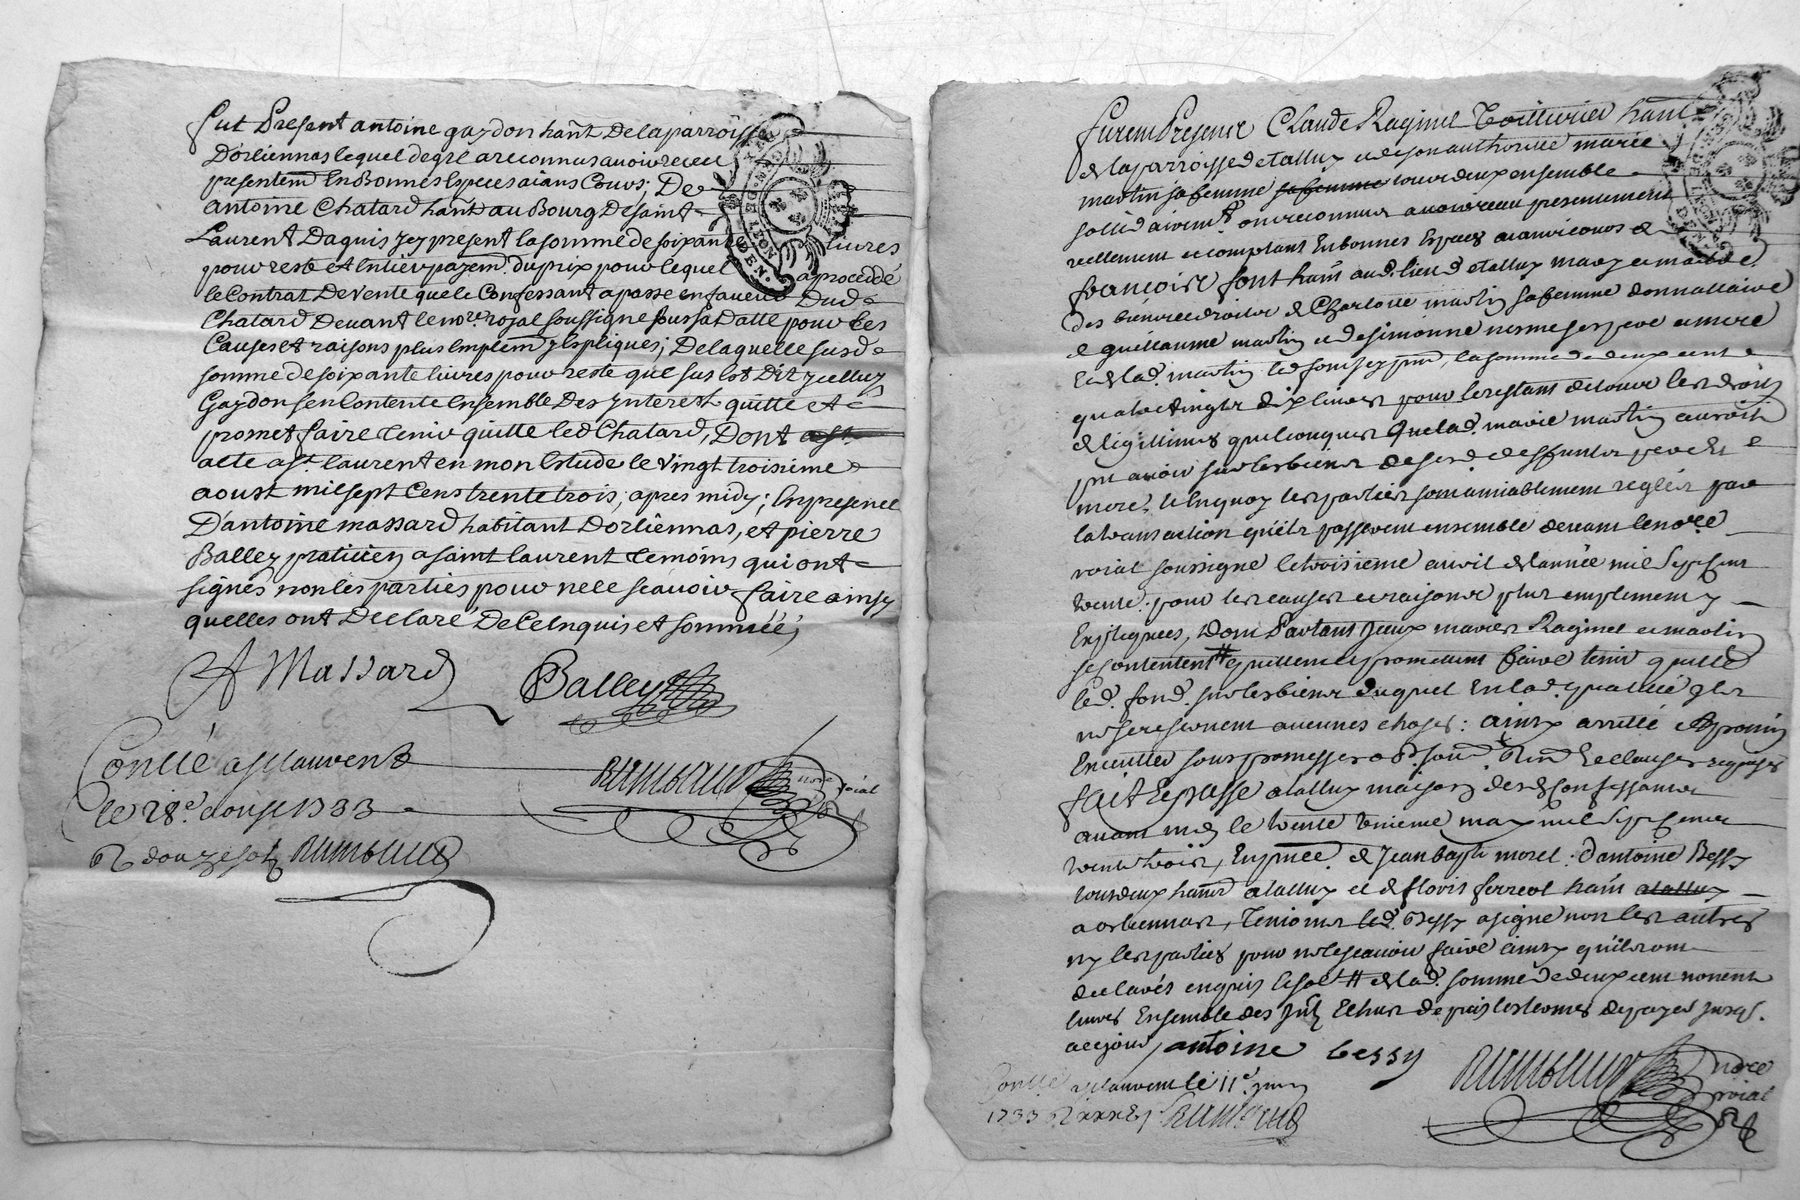 fut Present antoine gaydon hant De la parroisse
D'orliennas lequel de gré a reconnus avoir receu
presentemt En Bonnes Especes aians Cours; De
antoine Chatard hant au Bourg De saint
Laurent Dagnis Jcy present la somme de soixante livres
pour reste et Entier payemt du prix pour lequel a procedé
le Contrat De Vente que le Confessant a passé en faveur Dud
Chatard Devant le nore royal soussigné sous sa Datte pour les
Causes et raisons plus Emplemt y Expliques; De laquelle susd
somme de soixante livres pour reste que sus est Dit Jcelluy
Gaydon s'en Contente Ensemble Des Jnterest quitte et
promet faire tenir quitte led Chatard, Dont
acte a st laurent en mon Estude le Vingt troisieme
aoust mil sept Cens trente trois; apres midy; En presence
D'antoine massard habitant D'orliennas, et pierre
Balley praticien a saint laurent temoins qui ont
signés non les parties pour ne le scavoir faire ainsy
quelles ont Declaré De Ce Enquis et sommée;
A Massard Balley
Conllé a st laurent
le 28e aoust 1733
R douze sols
nore roial
furent Presents Claude Raginel hant
de la parroisse de tallux et de son authorité marie
martin sa femme sa femme tous deux ensemble
sollidairemt ont reconnus avoir receu presentement
reellement et comptant En bonnes Especes aians cours de
françois font hant aud. lieu de tallux mary et maitre
des biens et droits de Charlotte martin sa femme donnattaire
de guillaume martin et de simonne ses pere et mere
Et de lad. martin led font Jcy pnt, la somme de deux cent
quatre vingts dix livres pour le restant de tous les droits
de legittimes quelconques que lad. marie martin auroit
pu avoir sur les biens de sesd. deffunts pere Et
mere, le Enquoy les parties sont amiablement reglés par
la transaction qu'ils passerent ensemble devant le nore
roial soussigné le troisieme avril de l'année mil sept cent
trente. pour les causes et raisons plus emplement y
Expliquees, Dont Partant Jceux maries Raginel et martin
se contentent # quittent et promettent faire tenir quitte
led. font. sur les biens duquel En lad. qualité ils
ne se reservent aucunes choses: ainsy arretté
sous promesses
fait Et passé a tallux maison desd Confessants
avant midy le trente unieme may mil sept cent
trente trois, En pnce de Jean bapte morel. d'antoine Bessy
tous deux hants a tallux et de floris ferreol hant a tallux
a orliennas, temoins led. Bessy a signé non les autres
ny les parties pour ne le scavoir faire ainsy qu'ils ont
declarés enquis # de lad. somme de deux cent nonente
livres Ensemble des Jnts Echus depuis les termes de payes jusqs.
a ce jour, antoine bessy
nore roial
Conllé a st laurent le 11e juin
1733